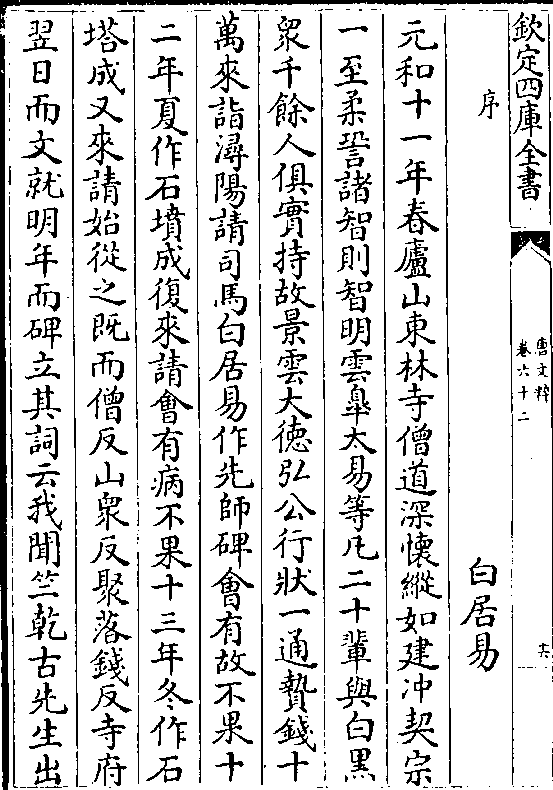 欽定四庫全書
唐文粹
卷六十二
六
序
白居易
元和十一年春廬山東林寺僧道深懷縱如建冲契宗
一至柔詧諸智則智明雲臯太易等凡二十輩與白黒
衆千餘人俱實持故景雲大徳弘公行狀一通贄錢十
萬來詣潯陽請司馬白居易作先師碑會有故不果十
二年夏作石墳成復來請會有病不果十三年冬作石
塔成又來請始從之既而僧反山衆反聚落錢反寺府
翌日而文就明年而碑立其詞云我聞竺乾古先生出